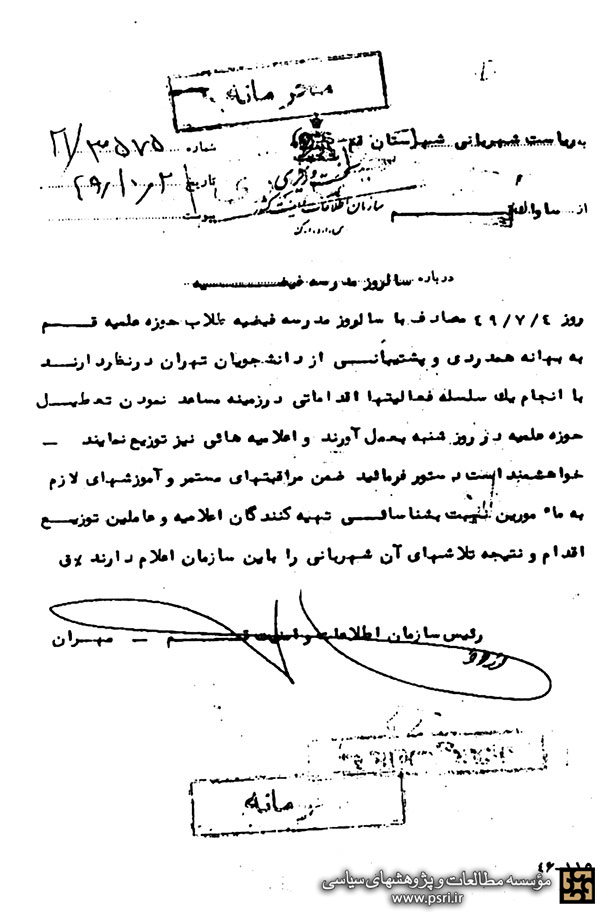 محرمانه
به ریاست شهربانی شهرستان قم
شماره ۲۱/۳۵۷۵
نخست وزیری
تاریخ
سازمان اطلاعات و امنیت کشور
از ساواک قم
پیوست
س.ا.و.ا.ک
درباره سالروز مدرسه فیضیه
روز ۴۹/۷/۴ مصادف با سالروز مدرسه فیضیه طلاب حوزه علمیه قم
به بهانه همدردی و پشتیبانی از دانشجویان تهران در نظر دارند
با انجام یک سلسله فعالیتها اقداماتی در زمینه مساعد نمودن تعطیل
حوزه علمیه در روز شنبه بعمل آورند و اعلامیه هائی نیز توزیع نمایند –
خواهشمند است دستور فرمائید ضمن مراقبتهای مستمر و آموزشهای لازم
به مامورین نسبت بشناسائی تهیه کنندگان اعلامیه و عاملین توزیع
اقدام و نتیجه تلاشهای آن شهربانی را باین سازمان اعلام دارند
رئیس سازمان اطلاعات و امنیت قم – مهران
محرمانه
۴۶-۱۱۵
مؤسسه مطالعات و پژوهشهای سیاسی
www.psri.ir